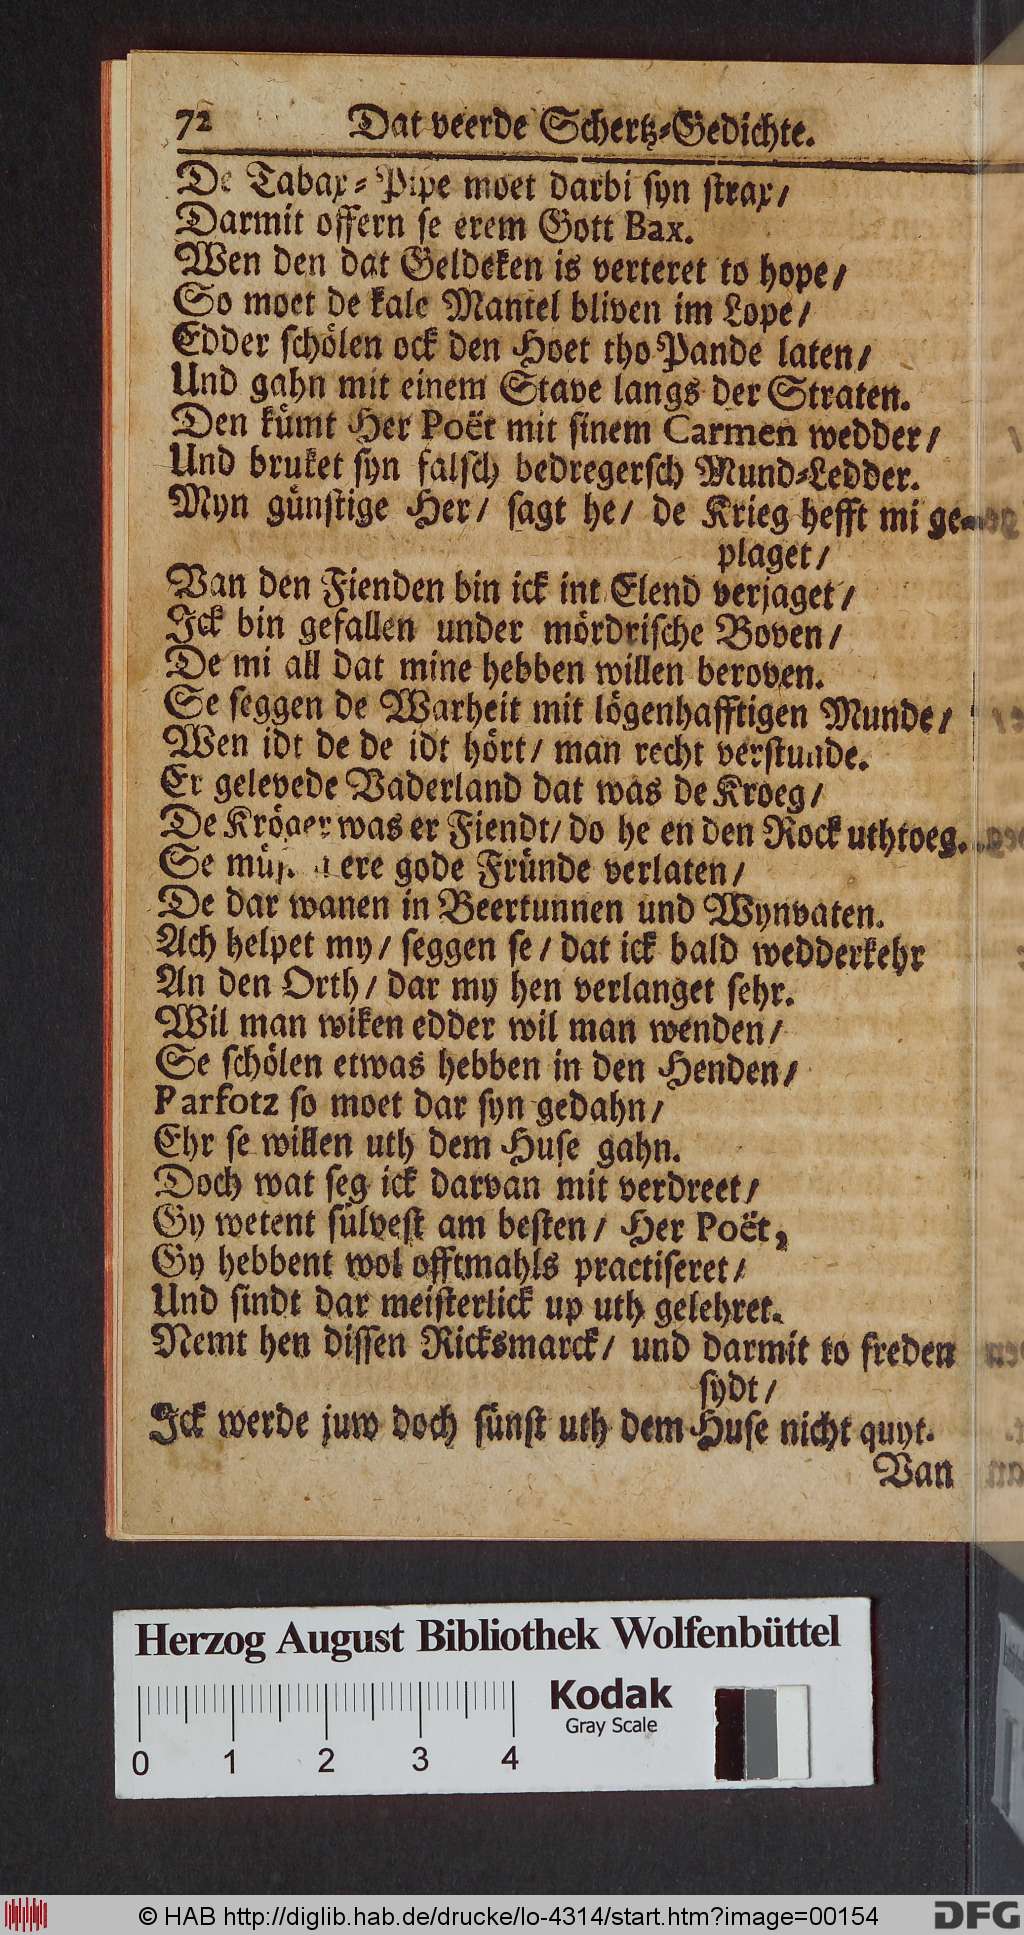 72 Dat veerde Schertz-Gedichte.
De Tabax-Pipe moet darbi syn strax/
Darmit offern se erem Gott Bax.
Wen den dat Geldeken is verteret to hope/
So moet de kale Mantel bliven im Lope/
Edder schölen ock den Hoet tho Pande laten/
Und gahn mit einem Stave langs der Straten.
Den kümt Her Poët mit sinem Carmen wedder/
Und bruket syn falsch bedregersch Mund-Ledder.
Myn günstige Her/ sagt he/ de Krieg hefft mi ge-
plaget/
Van den Fienden bin ick int Elend verjaget/
Ick bin gefallen under mördrische Boven/
De mi all dat mine hebben willen beroven.
Se seggen de Warheit mit lögenhafftigen Munde/
Wen idt de de idt hört/ man recht verstunde.
Er gelevede Vaderland dat was de Kroeg/
De Kröger was er Fiendt/ do he en den Rock uthtoeg.
Se ere gode Fründe verlaten/
De dar wanen in Beertunnen und Wynvaten.
Ach helpet my/ seggen se/ dat ick bald wedderkehr
An den Orth/ dar my hen verlanget sehr.
Wil man wiken edder wil man wenden/
Se schölen etwas hebben in den Henden/
Parfotz so moet dar syn gedahn/
Ehr se willen uth dem Huse gahn.
Doch wat seg ick darvan mit verdreet/
Gy wetent sülvest am besten/ Her Poët,
Gy hebbent wol offtmahls practiseret/
Und sindt dar meisterlick up uth gelehret.
Nemt hen dissen Ricksmarck/ und darmit to freden
sydt/
Ick werde juw doch sünst uth dem Huse nicht quyt.
Van
Herzog August Bibliothek Wolfenbüttel
Kodak
Gray Scale
0 1 2 3 4
© HAB http://diglib.hab.de/drucke/lo-4314/start.htm?image=00154
DFG